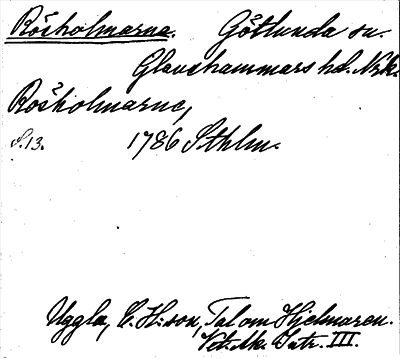 Rösholmarna. Götlunda sn.
Glanshammars hd. Nrk.
Rösholmarne,
S. 13. 1786 Sthlm.
Uggla, C. H:son, Tal om Hjelmaren.
Vet. Ak. Intr. III.